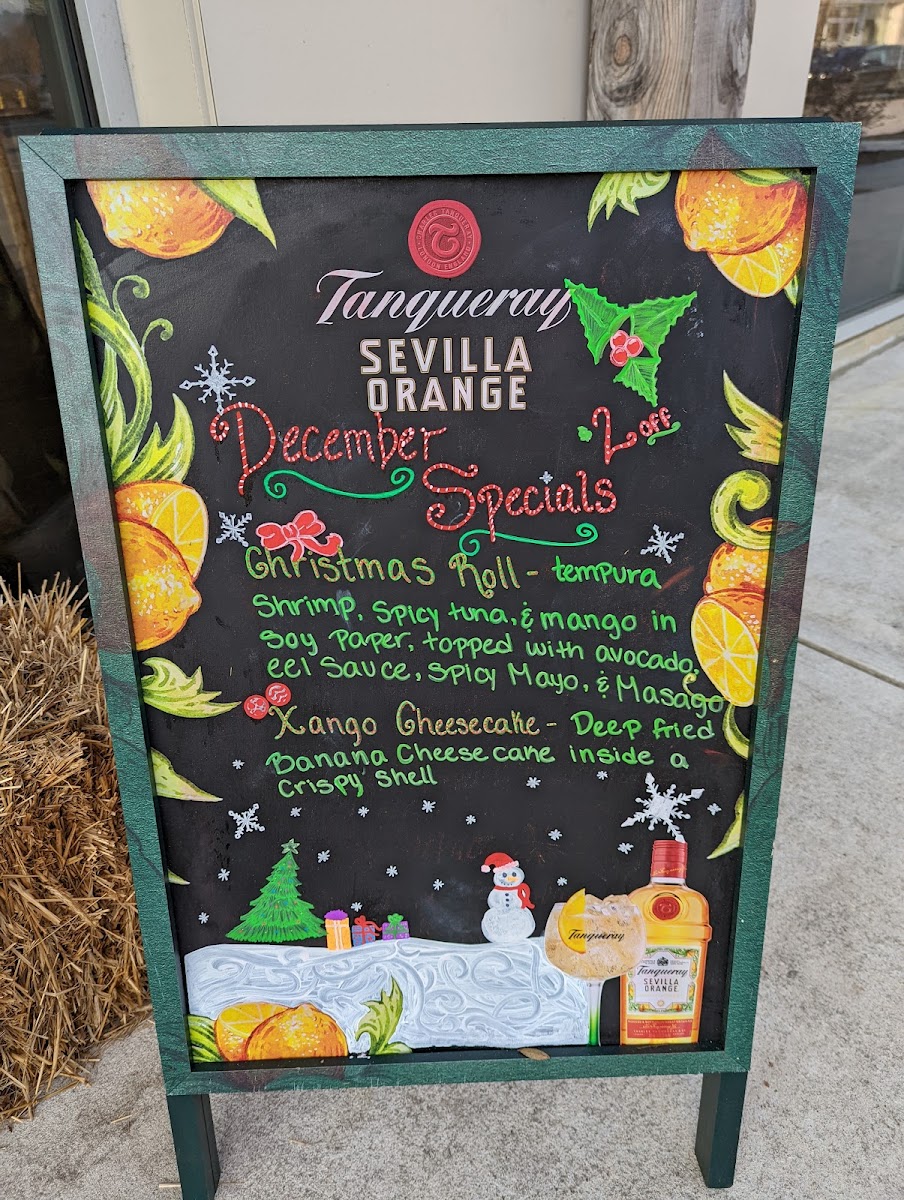 CHARLES TANQUERAY
LONDON ENGLAND
Tanqueray
SEVILLA
ORANGE
December
2 off
Specials
Christmas Roll - tempura
Shrimp, Spicy tuna, & mango in
Soy Paper, topped with avocado,
eel Sauce, Spicy Mayo, & Masago
Xango Cheesecake - Deep fried
Banana Cheesecake inside a
Crispy Shell
Tanqueray
Tanqueray
SEVILLA
ORANGE